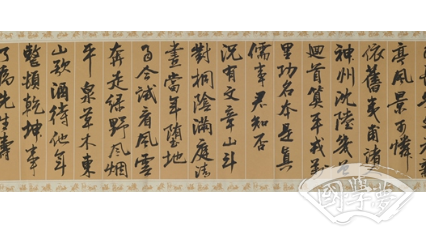 亭風景可憐
依舊夷甫諸人
神州沈陸幾曾
迴首算平戎萬
里功名本是真
儒事君知否
況有文章山斗
對桐陰滿庭清
晝當年墮地
而今試看風雲
奔走綠野風烟
平泉草木東
山歌酒待他年
整頓乾坤事
了為先生壽
國學夢